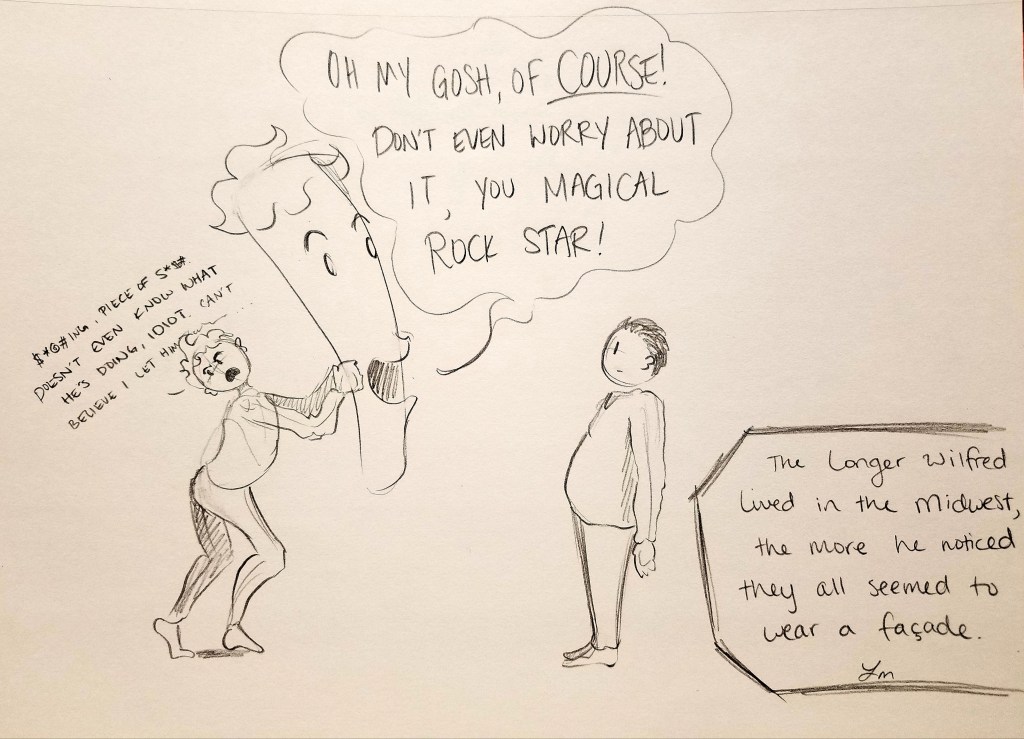 OH MY GOSH, OF COURSE!
DON'T EVEN WORRY ABOUT
IT, YOU MAGICAL
ROCK STAR!
$*@#ING, PIECE OF S*$#
DOESN'T EVEN KNOW WHAT
HE'S DOING, IDIOT. CAN'T
BELIEVE I LET HIM
The Longer Wilfred
Lived in the Midwest,
the more he noticed
they all seemed to
wear a façade.